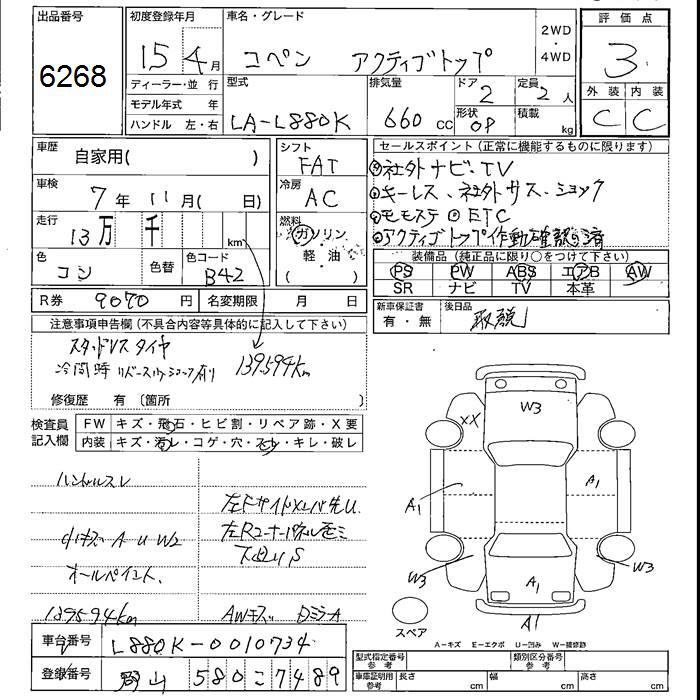 出品番号
6268
初度登録年月
15 4月
ディーラー・並行
モデル年式 年
ハンドル 左・右
車名・グレード
コペン アクティブトップ
2WD
・
4WD
型式
LA-L880K
排気量
660 cc
ドア
2
形状
OP
定員
2人
積載
kg
評価点
3
外装 内装
C C
車歴
自家用( )
車検
7年11月( 日)
走行
13万 千 km
色
コン
色替
色コード
B42
R券 9070円
名変期限 月 日
シフト
FAT
冷房
AC
燃料
ガソリン
・
軽油
セールスポイント(正常に機能するものに限ります)
社外ナビ・TV
キーレス、社外サス・ショック
モモステ ETC
アクティブトップ作動確認済
装備品(純正品に限り○をつけて下さい)
PS PW ABS エアB AW
SR ナビ TV 本革
新車保証書
有・無
後日品
取説
注意事項申告欄(不具合内容等具体的に記入して下さい)
スタッドレスタイヤ
冷間時 リバース ショック有り
139594km
修復歴 有 (箇所 )
検査員
記入欄
FW キズ・飛石・ヒビ割・リペア跡・X要
内装 キズ・汚レ・コゲ・穴・スレ・キレ・破レ
ハンドルスレ
小キズ A U W2
オールペイント、
139594km
左Fサイドメンバ先U
左Rコーナーパネル歪ミ
下廻リS
AWキズ DミラーA
W3
XX
A1
A1
W3
W3
A1
A1
スペア
A-キズ E-エクボ U-凹み W-補修跡
車台番号
L880K-0010734
登録番号
郡山 580こ7489
型式指定番号
参考
類別区分番号
参考
車庫証明用
参考
長さ cm
幅 cm
高さ cm